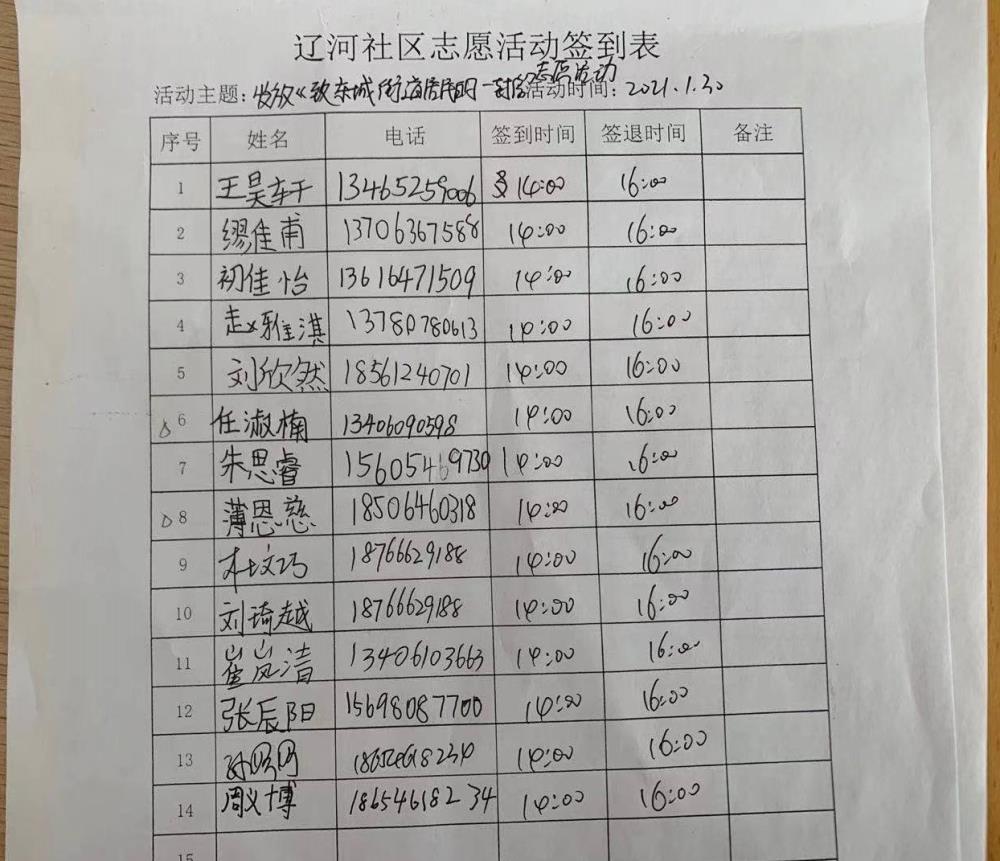 辽河社区志愿活动签到表
志愿活动
活动主题：发放《致东城街道居民的一封信 活动时间：2021.1.30
序号 姓名 电话 签到时间 签退时间 备注
1 王昊轩 13465259006 14:00 16:00
2 缪佳甫 13706367588 14:00 16:00
3 初佳怡 13616471509 14:00 16:00
4 赵雅淇 13780780613 14:00 16:00
5 刘欣然 18561240701 14:00 16:00
6 任淑楠 13406090598 14:00 16:00
7 朱思睿 15605469730 14:00 16:00
8 薄恩慈 18506460318 14:00 16:00
9 18766629188 14:00 16:00
10 刘琦越 18766629188 14:00 16:00
11 崔岚清 13406103663 14:00 16:00
12 张辰阳 15698087700 14:00 16:00
13 14:00 16:00
14 周义博 18654618234 14:00 16:00
15